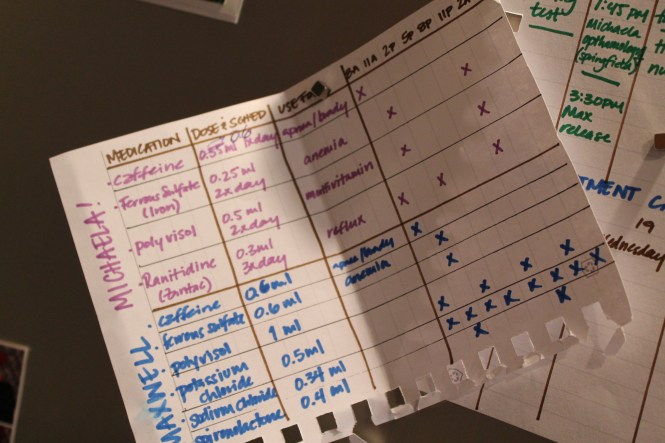 MEDICATION DOSE & SCHED USE FOR 8A 11A 2P 5P 8P 11P 2A
MICHAELA!
caffeine 0.55ml 1xday apnea/brady X
Ferrous Sulfate (Iron) 0.25 ml 2xday anemia X X
polyvisol 0.5 ml 2xday multivitamin X X
Ranitidine (zantac) 0.3ml 3xday reflux X X X
MAXWELL.
caffeine 0.6ml apnea/brady X
ferrous sulfate 0.6 ml anemia X
polyvisol 1 ml
potassium chloride 0.5ml
sodium chloride 0.34 ml
spironolactone 0.4 ml
test
1:45 pm
Michaela
opthamology
(springfield)
3:30pm
Max
release
19